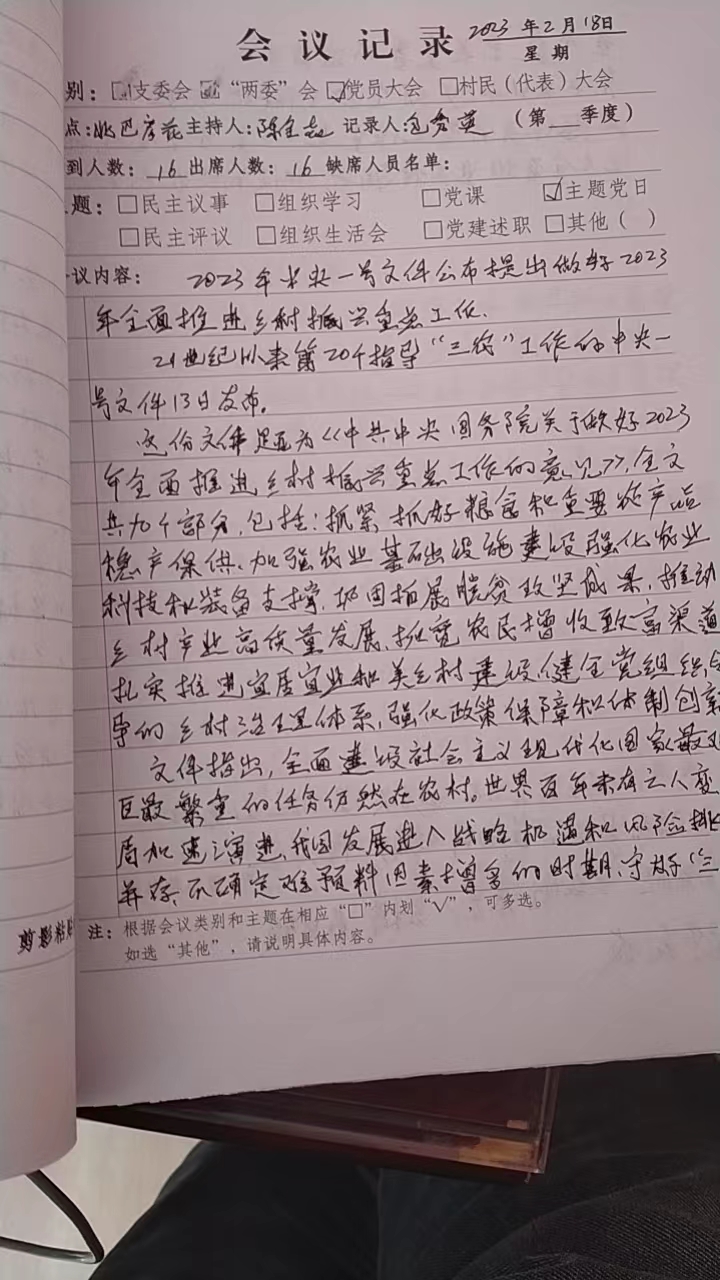 会议记录 2023年2月18日
星期
别：☑支委会 ☑“两委”会 ☑党员大会 □村民（代表）大会
点： 主持人： 记录人： （第__季度）
到人数：16 出席人数：16 缺席人员名单：
题：□民主议事 □组织学习 □党课 ☑主题党日
□民主评议 □组织生活会 □党建述职 □其他（ ）
议内容： 2023年中央一号文件公布提出做好2023
年全面推进乡村振兴重点工作.
21世纪以来第20个指导“三农”工作的中央一
号文件13日发布。
这份文件题为《中共中央 国务院关于做好2023
年全面推进乡村振兴重点工作的意见》,全文
共九个部分,包括:抓紧抓好粮食和重要农产品
稳产保供、加强农业基础设施建设强化农业
科技和装备支撑、巩固拓展脱贫攻坚成果、推动
乡村产业高质量发展、拓宽农民增收致富渠道
扎实推进宜居宜业和美乡村建设、健全党组织
导的乡村治理体系,强化政策保障和体制创新
文件指出,全面建设社会主义现代化国家最
巨最繁重的任务仍然在农村。世界百年未有之人变
局加速演进,我国发展进入战略机遇和风险挑
并存,不确定难预料因素增多的时期,守好“三
剪影粘贴
注：根据会议类别和主题在相应“□”内划“√”，可多选。
如选“其他”，请说明具体内容。